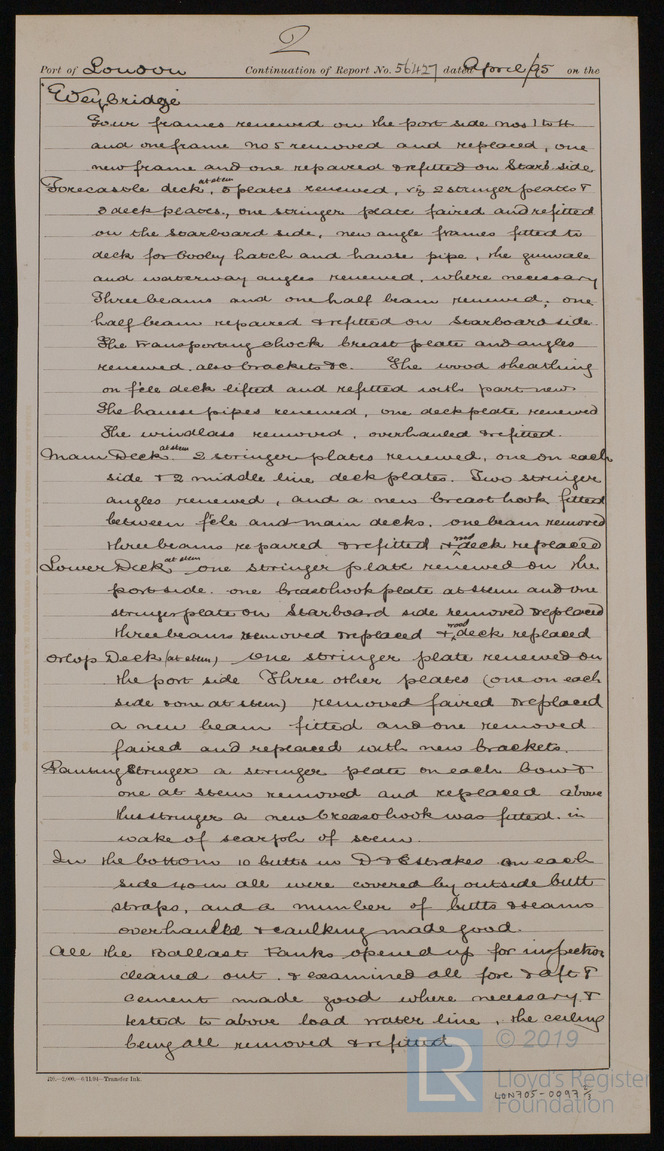 2
Port of London Continuation of Report No. 56427 dated April/95 on the
"Weybridge"
Four frames renewed on the port side nos 1 to 4
and one frame no 5 removed and replaced, one
new frame and one repaired & refitted on Starb side
Forecastle deck at stem, 5 plates renewed, viz 2 stringer plates &
3 deck plates, one stringer plate faired and refitted
on the starboard side, new angle frames fitted to
deck for booby hatch and hawse pipe, the gunwale
and waterway angles renewed, where necessary
Three beams and one half beam renewed, one
half beam repaired & refitted on Starboard side
The transporting chock breast plate and angles
renewed, also brackets &c. The wood sheathing
on f'cle deck lifted and refitted with part new
The hawse pipes renewed, one deck plate renewed
The windlass removed, overhauled & refitted.
Main Deck at stem 2 stringer plates renewed, one on each
side & 2 middle line deck plates. Two stringer
angles renewed, and a new breast hook fitted
between f'cle and main decks. one beam removed
three beams repaired & refitted & wood deck replaced
Lower Deck at stem one stringer plate renewed on the
port side. one breasthook plate at stem and one
stringer plate on Starboard side removed & replaced
three beams removed & replaced & wood deck replaced
Orlop Deck (at stem) One stringer plate renewed on
the port side Three other plates (one on each
side & one at stem) removed faired & replaced
a new beam fitted and one removed
faired and replaced with new brackets.
Panting Stringer a stringer plate on each bow &
one at stem removed and replaced above
this stringer a new breasthook was fitted in
wake of scarph of stem.
In the bottom 10 butts in D & E strakes on each
side 40 in all were covered by outside butt
straps, and a number of butts & seams
overhauled & caulking made good.
All the Ballast Tanks opened up for inspection
cleaned out & examined all fore & aft &
cement made good where necessary &
tested to above load water line, the ceiling
being all removed & refitted
—2,000.—6/11/94—Transfer Ink.
LR
© 2019
Lloyd's Register
Foundation
LON705-0097 2/3